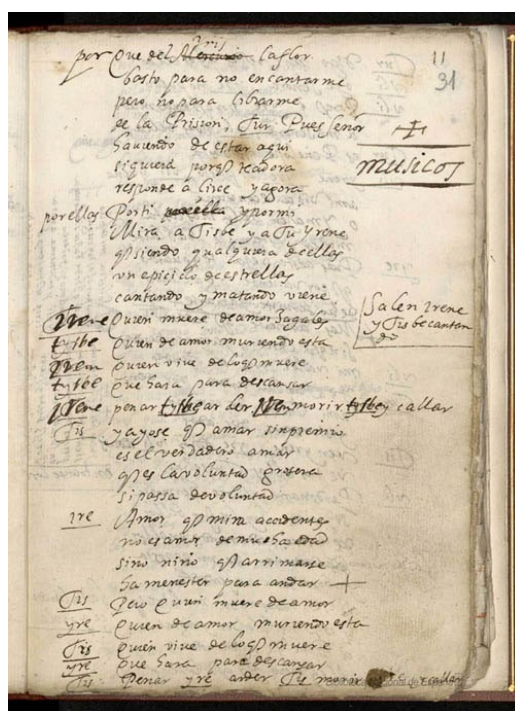 11
31
yris
por que del Mercurio la flor
basto para no encantarme
pero no para librarme
de la Prision, Tur. Pues señor
haviendo de estar aqui
siquiera porq te adora
responde a Circe y agora
por ellas Por ti por ella y por mi
Mira a Tisbe y a Tu Yrene
q siendo qualquiera de ellas
un epiciclo de estrellas
cantando y matando viene
+
musicos
Salen Irene
y Tisbe cantan
do
Irene Quien muere de amor Zagales
tysbe quien de amor muriendo esta
Iren quien vive de lo q muere
tysbe que hara para descansar
Irene penar tysbe arder Iren morir tysbe y callar
Tis ya yo se q amar sin premio
es el verdadero amar
q es la voluntad grosera
si passa de voluntad
yre Amor q mira accidentes
no es amor de mucha edad
sino niño q arrimarse
ha menester para andar +
Tis Pero quien muere de amor
yre quien de amor muriendo esta
Tis quien vive de lo q muere
yre que hara para descansar
Tis Penar yre arder Tis morir y callar